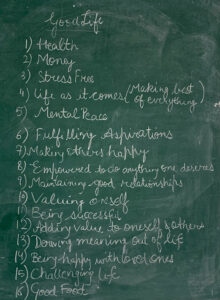 Good Life
1) Health
2) Money
3) Stress Free
4) Life as it comes (Making best of everything)
5) Mental Peace
6) Fulfilling Aspirations
7) Making others happy
8) Empowered to do anything one desires
9) Maintaining good relationships
10) Valuing oneself
11) Being successful
12) Adding value to oneself & others
13) Drawing meaning out of life
14) Being happy with loved ones
15) Challenging life
16) Good Food